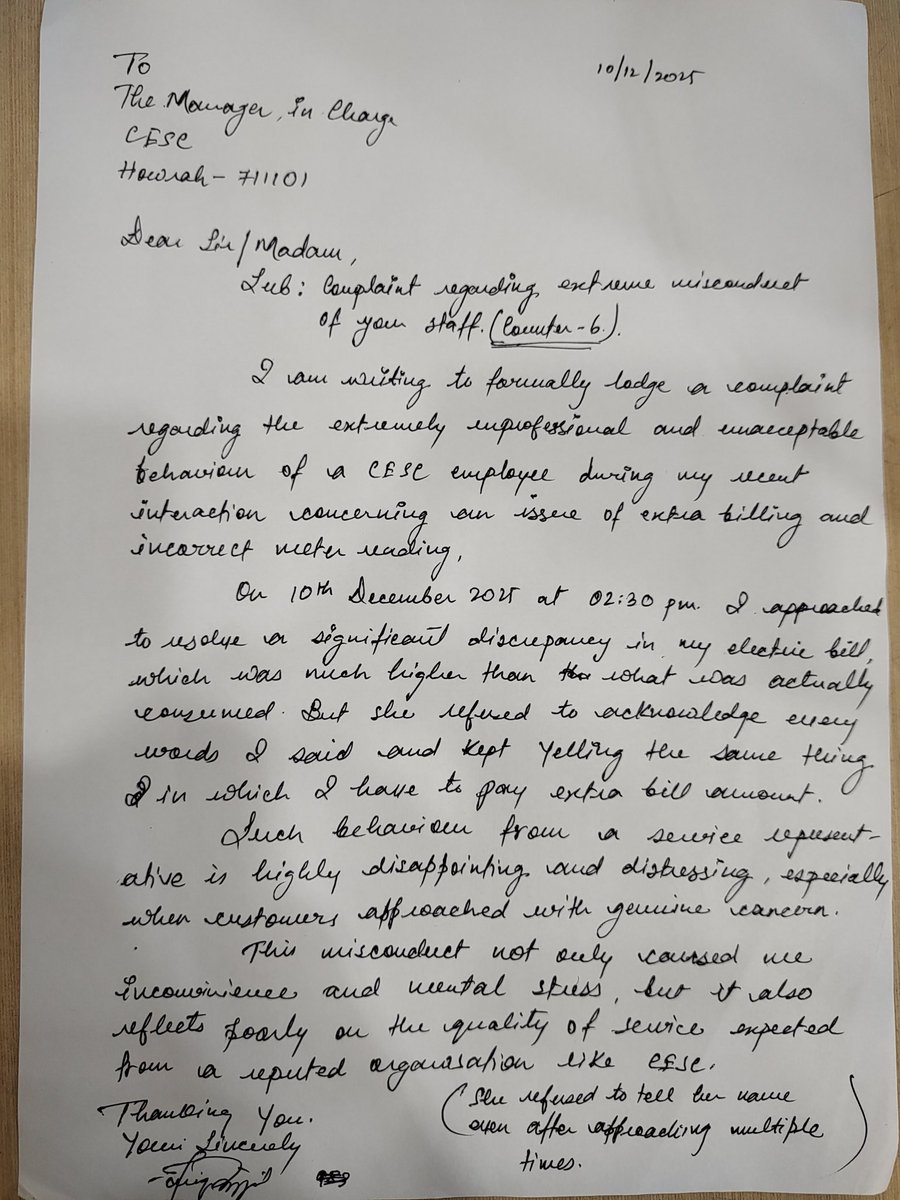 To
10/12/2025
The Manager, in Charge
CESC
Howrah - 711101
Dear Sir/Madam,
Sub: Complaint regarding extreme misconduct
of your staff. (Counter-6.).
I am writing to formally lodge a complaint
regarding the extremely unprofessional and unacceptable
behaviour of a CESC employee during my recent
interaction concerning an issue of extra billing and
incorrect meter reading,
On 10th December 2025 at 02:30 pm. I approached
to resolve a significant discrepancy in my electric bill,
which was much higher than what was actually
consumed. But she refused to acknowledge every
words I said and kept yelling the same thing
in which I have to pay extra bill amount.
Such behaviour from a service represent-
ative is highly disappointing and distressing, especially
when customers approached with genuine concern.
This misconduct not only caused me
inconvinience and mental stress, but it also
reflects poorly on the quality of service expected
from a reputed organisation like CESC.
Thanking You.
Yours Sincerely
(She refused to tell her name
even after approaching multiple
times.)